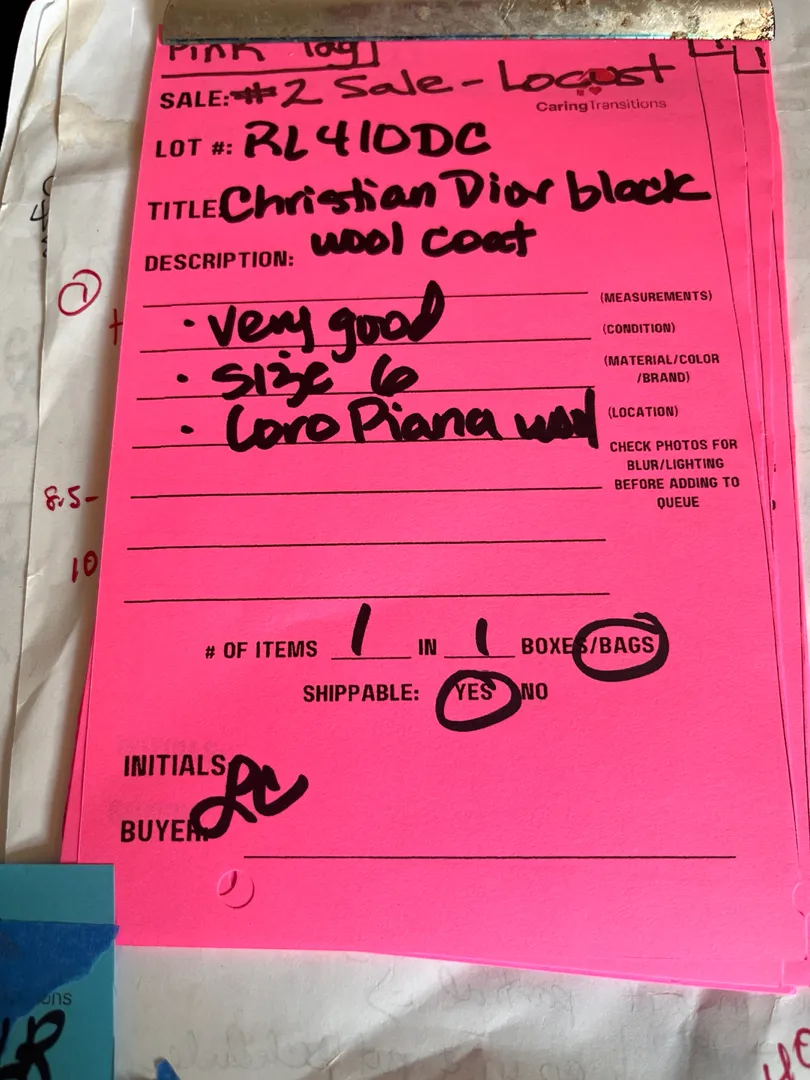 Pink Tag
SALE: #2 Sale - Locust
CaringTransitions
LOT #: RL410DC
TITLE: Christian Dior black
wool coat
DESCRIPTION:
(MEASUREMENTS)
• very good
(CONDITION)
• size 6
(MATERIAL/COLOR
/BRAND)
• Loro Piana wool
(LOCATION)
CHECK PHOTOS FOR
BLUR/LIGHTING
BEFORE ADDING TO
QUEUE
1
8.5-
10
# OF ITEMS 1 IN 1 BOXES/BAGS
SHIPPABLE: YES NO
INITIALS
LC
BUYER: